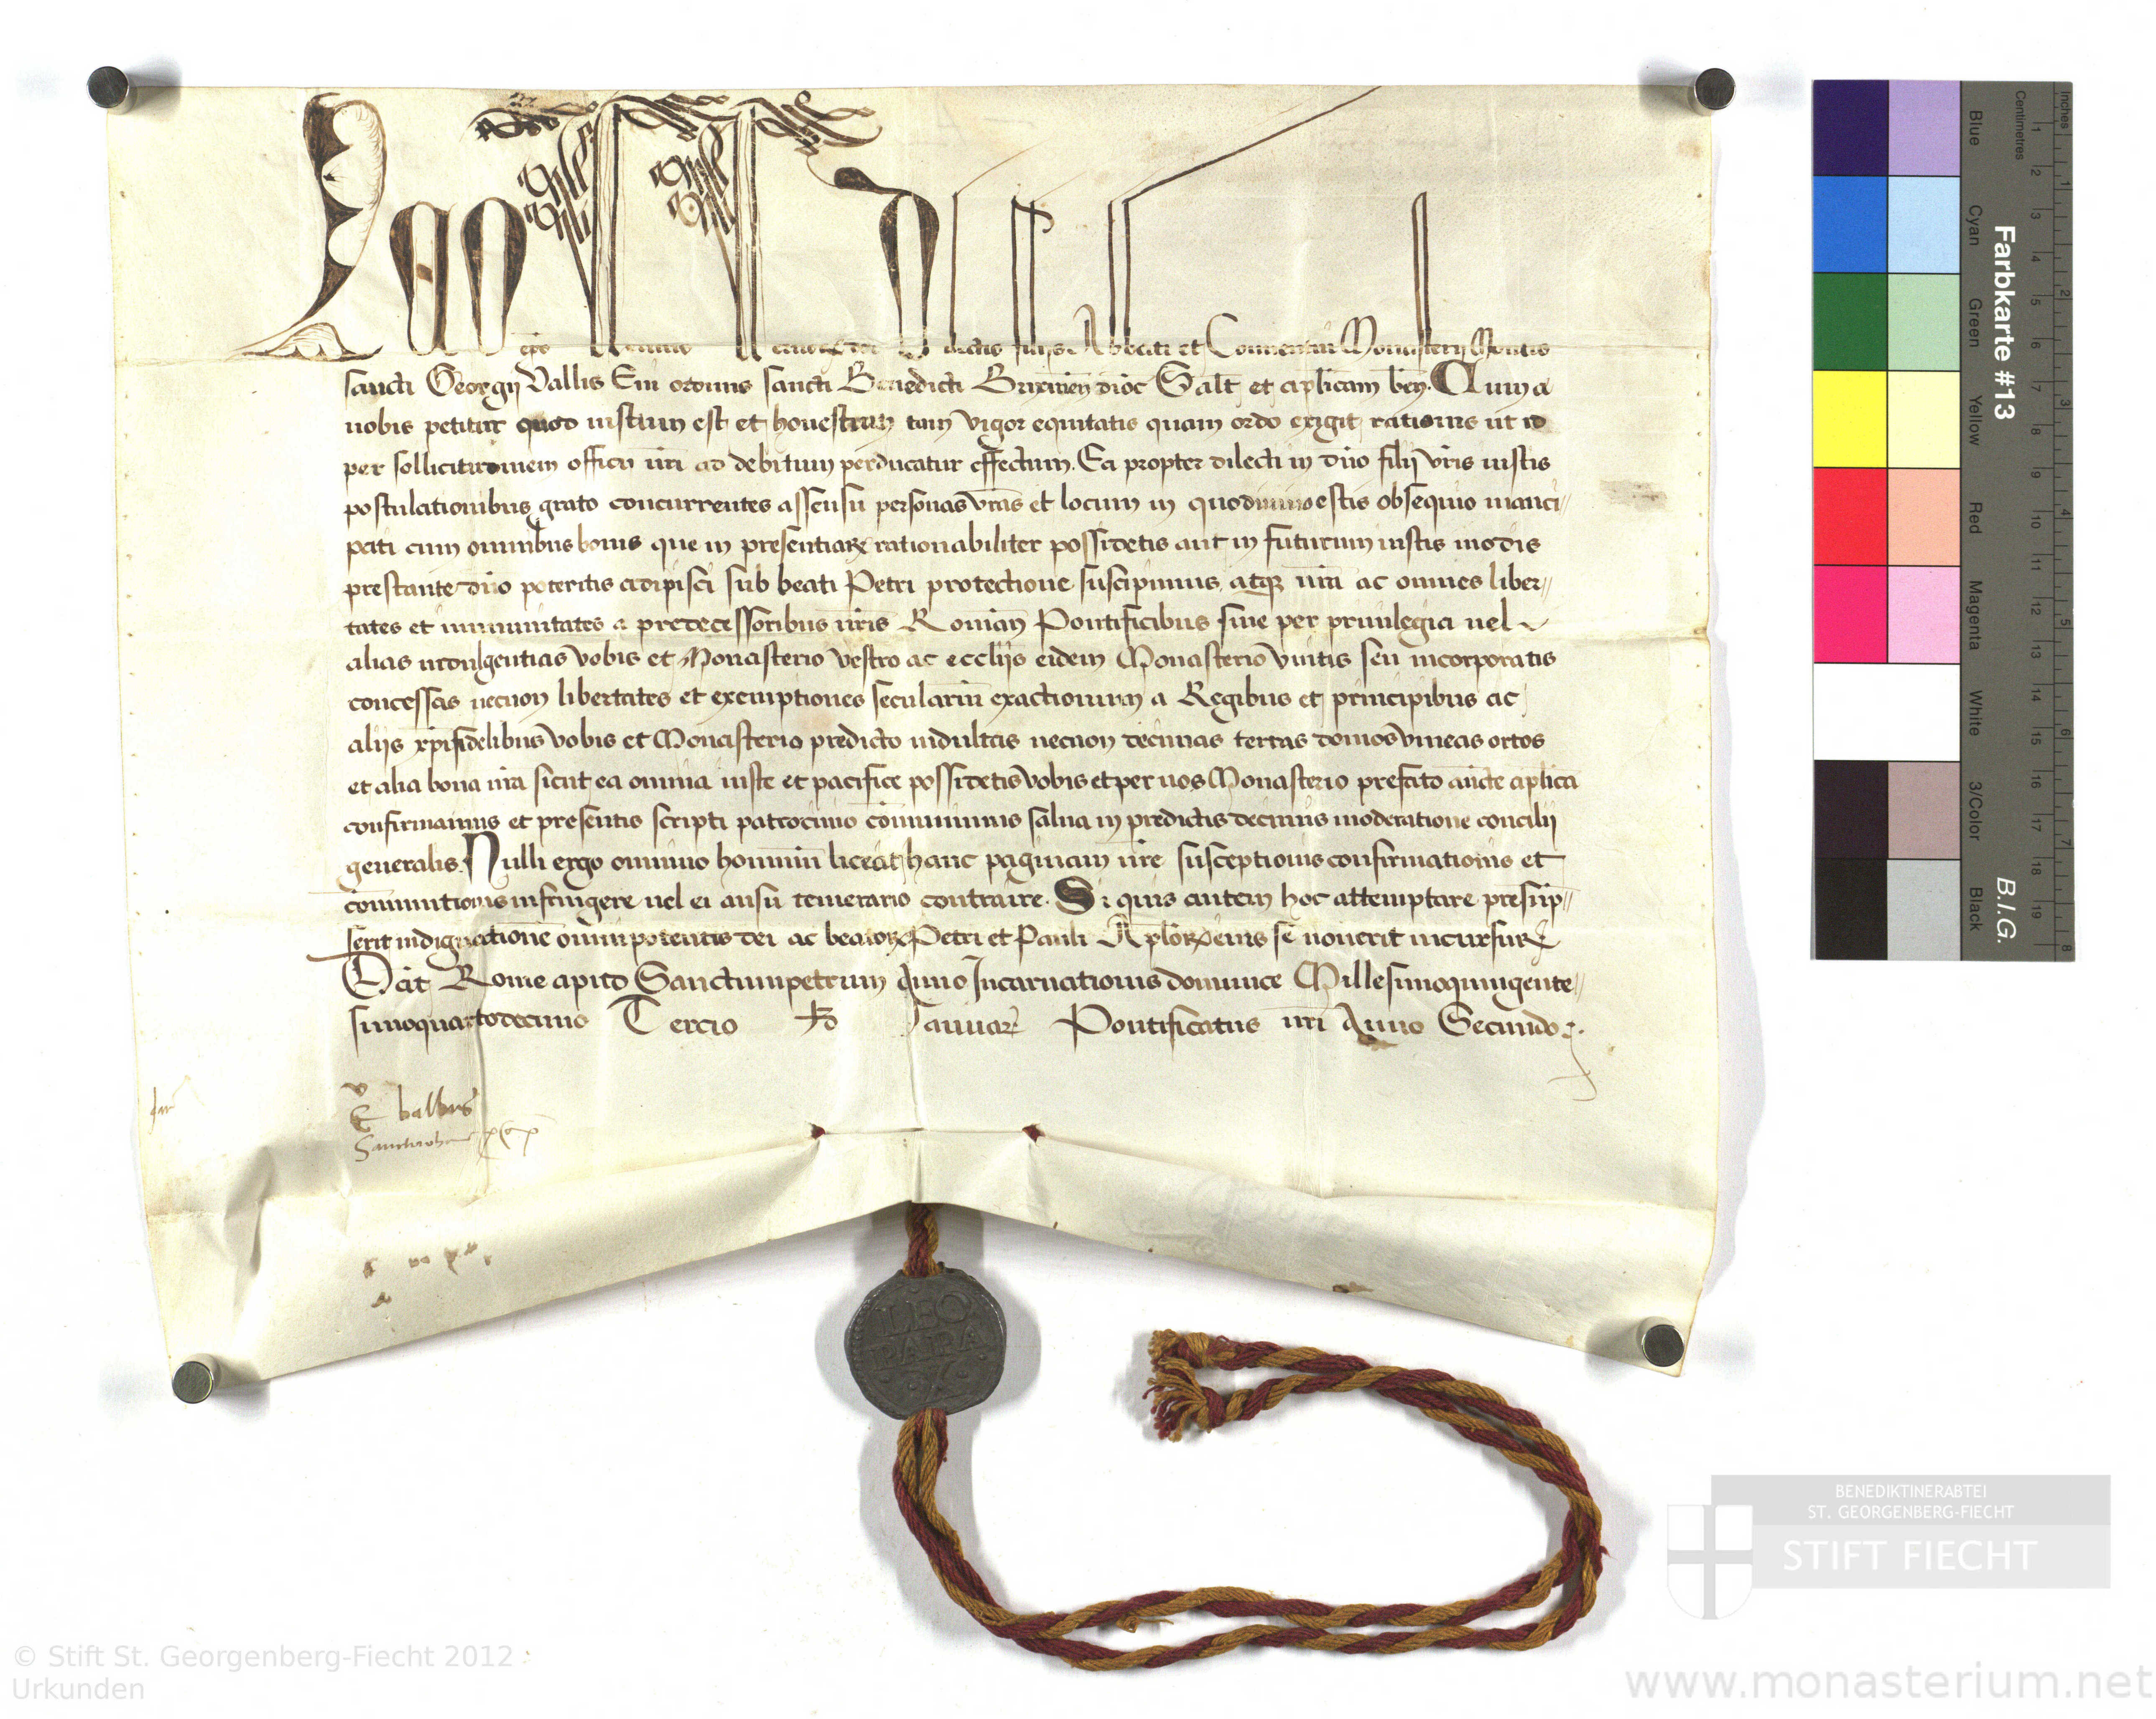 Leo eps servus servorum dei Dilectis filijs Abbati et Conventui Monasterij Montis
sancti Georgij Vallis Eni ordinis sancti Benedicti Brixinen dioc Salt et aplicam ben. Cum a
nobis petitur quod iustum est et honestum tam vigor equitatis quam ordo exigit rationis ut id
per sollicitudinem officii nri ad debitum perducatur effectum. Ea propter dilecti in dno filij vris iustis
postulationibus grato concurrentes assensu personas vras et locum in quo divino estis obsequio manci//
pati cum omnibus bonis que in presentiarum rationabiliter possidetis aut in futurum iustis modis
prestante dno poteritis adipisci sub beati Petri protectione suscipimus, atque nra ac omnes liber//
tates et immunitates a predecessoribus nris Roman Pontificibus sive per privilegia vel
alias indulgentias vobis et Monasterio vestro ac ecclijs eidem Monasterio unitis seu incorporatis
concessas necnon libertates et exemptiones secularium exactionum a Regibus et principibus ac
alijs xpifidelibus vobis et Monasterio predicto indultas necnon decimas terras domos vineas ortos
et alia bona nra sicut ea omnia iuste et pacifice possidetis vobis et per vos Monasterio prefato aucte aplica
confirmamus et presentis scripti patrocinio communimus salva in predictis decimis moderatione concilij
generalis. Nulli ergo omnino hominum liceat hanc paginam nre susceptionis confirmationis et
communitionis infringere vel ei ausu temerario contraire. Si quis autem hoc attemptare presump//
serit indignatione omnipotentis dei ac beatorum Petri et Pauli Aplorum eius se noverit incursurum
Dat Rome apud Sanctumpetrum Anno Incarnationis dominice Millesimoquingente//
simoquartodecimo Tercio kl Januar Pontificatus nri Anno Secundo
balbus
LEO
PAPA
X
Farbkarte #13
B.I.G.
Centimetres
Inches
1 2 3 4 5 6 7 8 9 10 11 12 13 14 15 16 17 18 19
1 2 3 4 5 6 7 8
Blue
Cyan
Green
Yellow
Red
Magenta
White
3/Color
Black
BENEDIKTINERABTEI
ST. GEORGENBERG-FIECHT
STIFT FIECHT
© Stift St. Georgenberg-Fiecht 2012
Urkunden
www.monasterium.net